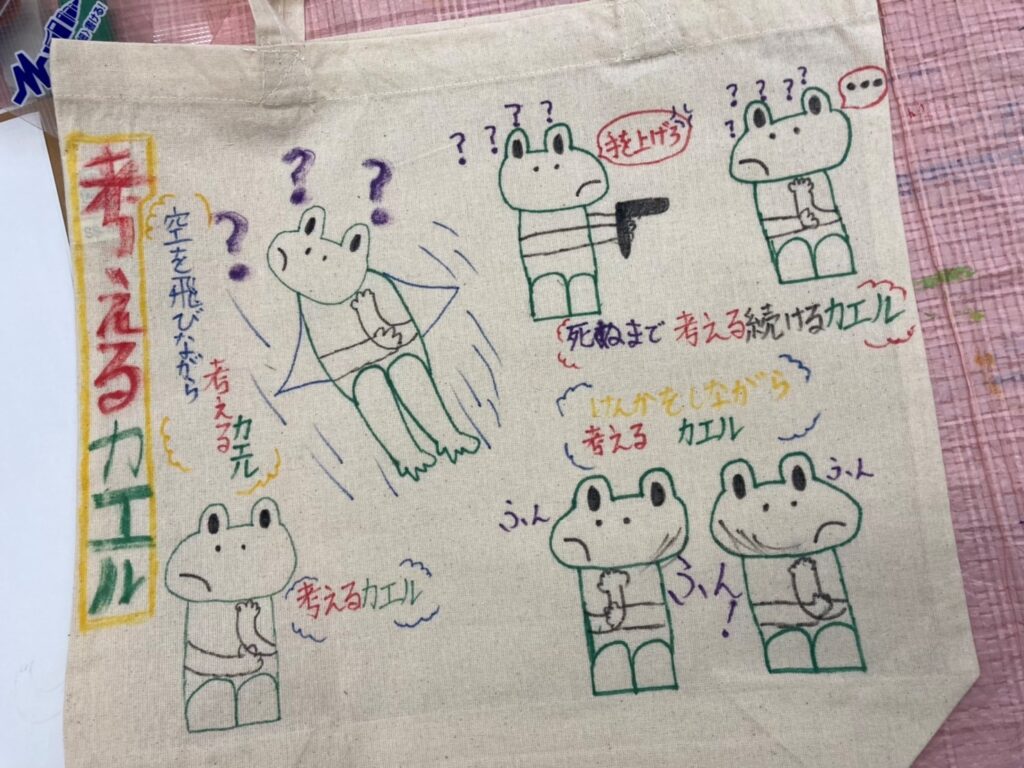 考えるカエル
空を飛びながら
考える
カエル
? ? ?
? ? ? ?
手を上げろ
? ? ? ? ?
•••
死ぬまで考える続けるカエル
けんかをしながら
考える カエル
ふん
ふん
ふん!
考えるカエル